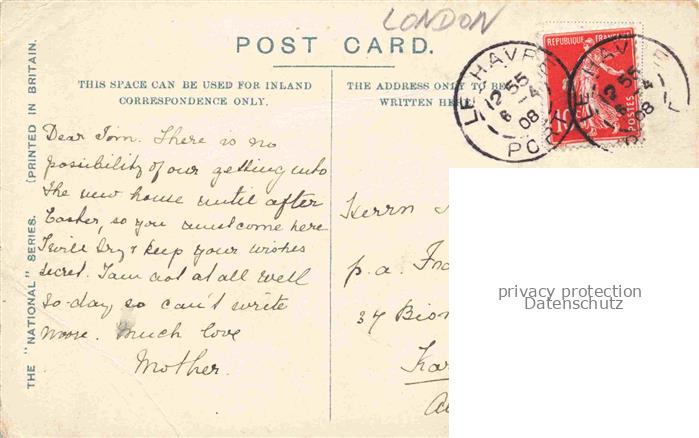 LONDON
POST CARD.
THIS SPACE CAN BE USED FOR INLAND
CORRESPONDENCE ONLY.
THE ADDRESS ONLY TO BE
WRITTEN HERE
REPUBLIQUE FRANÇAISE
10
POSTES
LE HAVRE
12 55
6 -4
08
PORT
LE HAVRE
12 55
6 -4
08
THE "NATIONAL" SERIES. (PRINTED IN BRITAIN.
Dear Tom. There is no
possibility of our getting into
the new house until after
Easter, so you must come here
I will try & keep your wishes
secret. I am not at all well
to-day so can't write
more. Much love
Mother.
Herrn
p.a.
37
privacy protection
Datenschutz